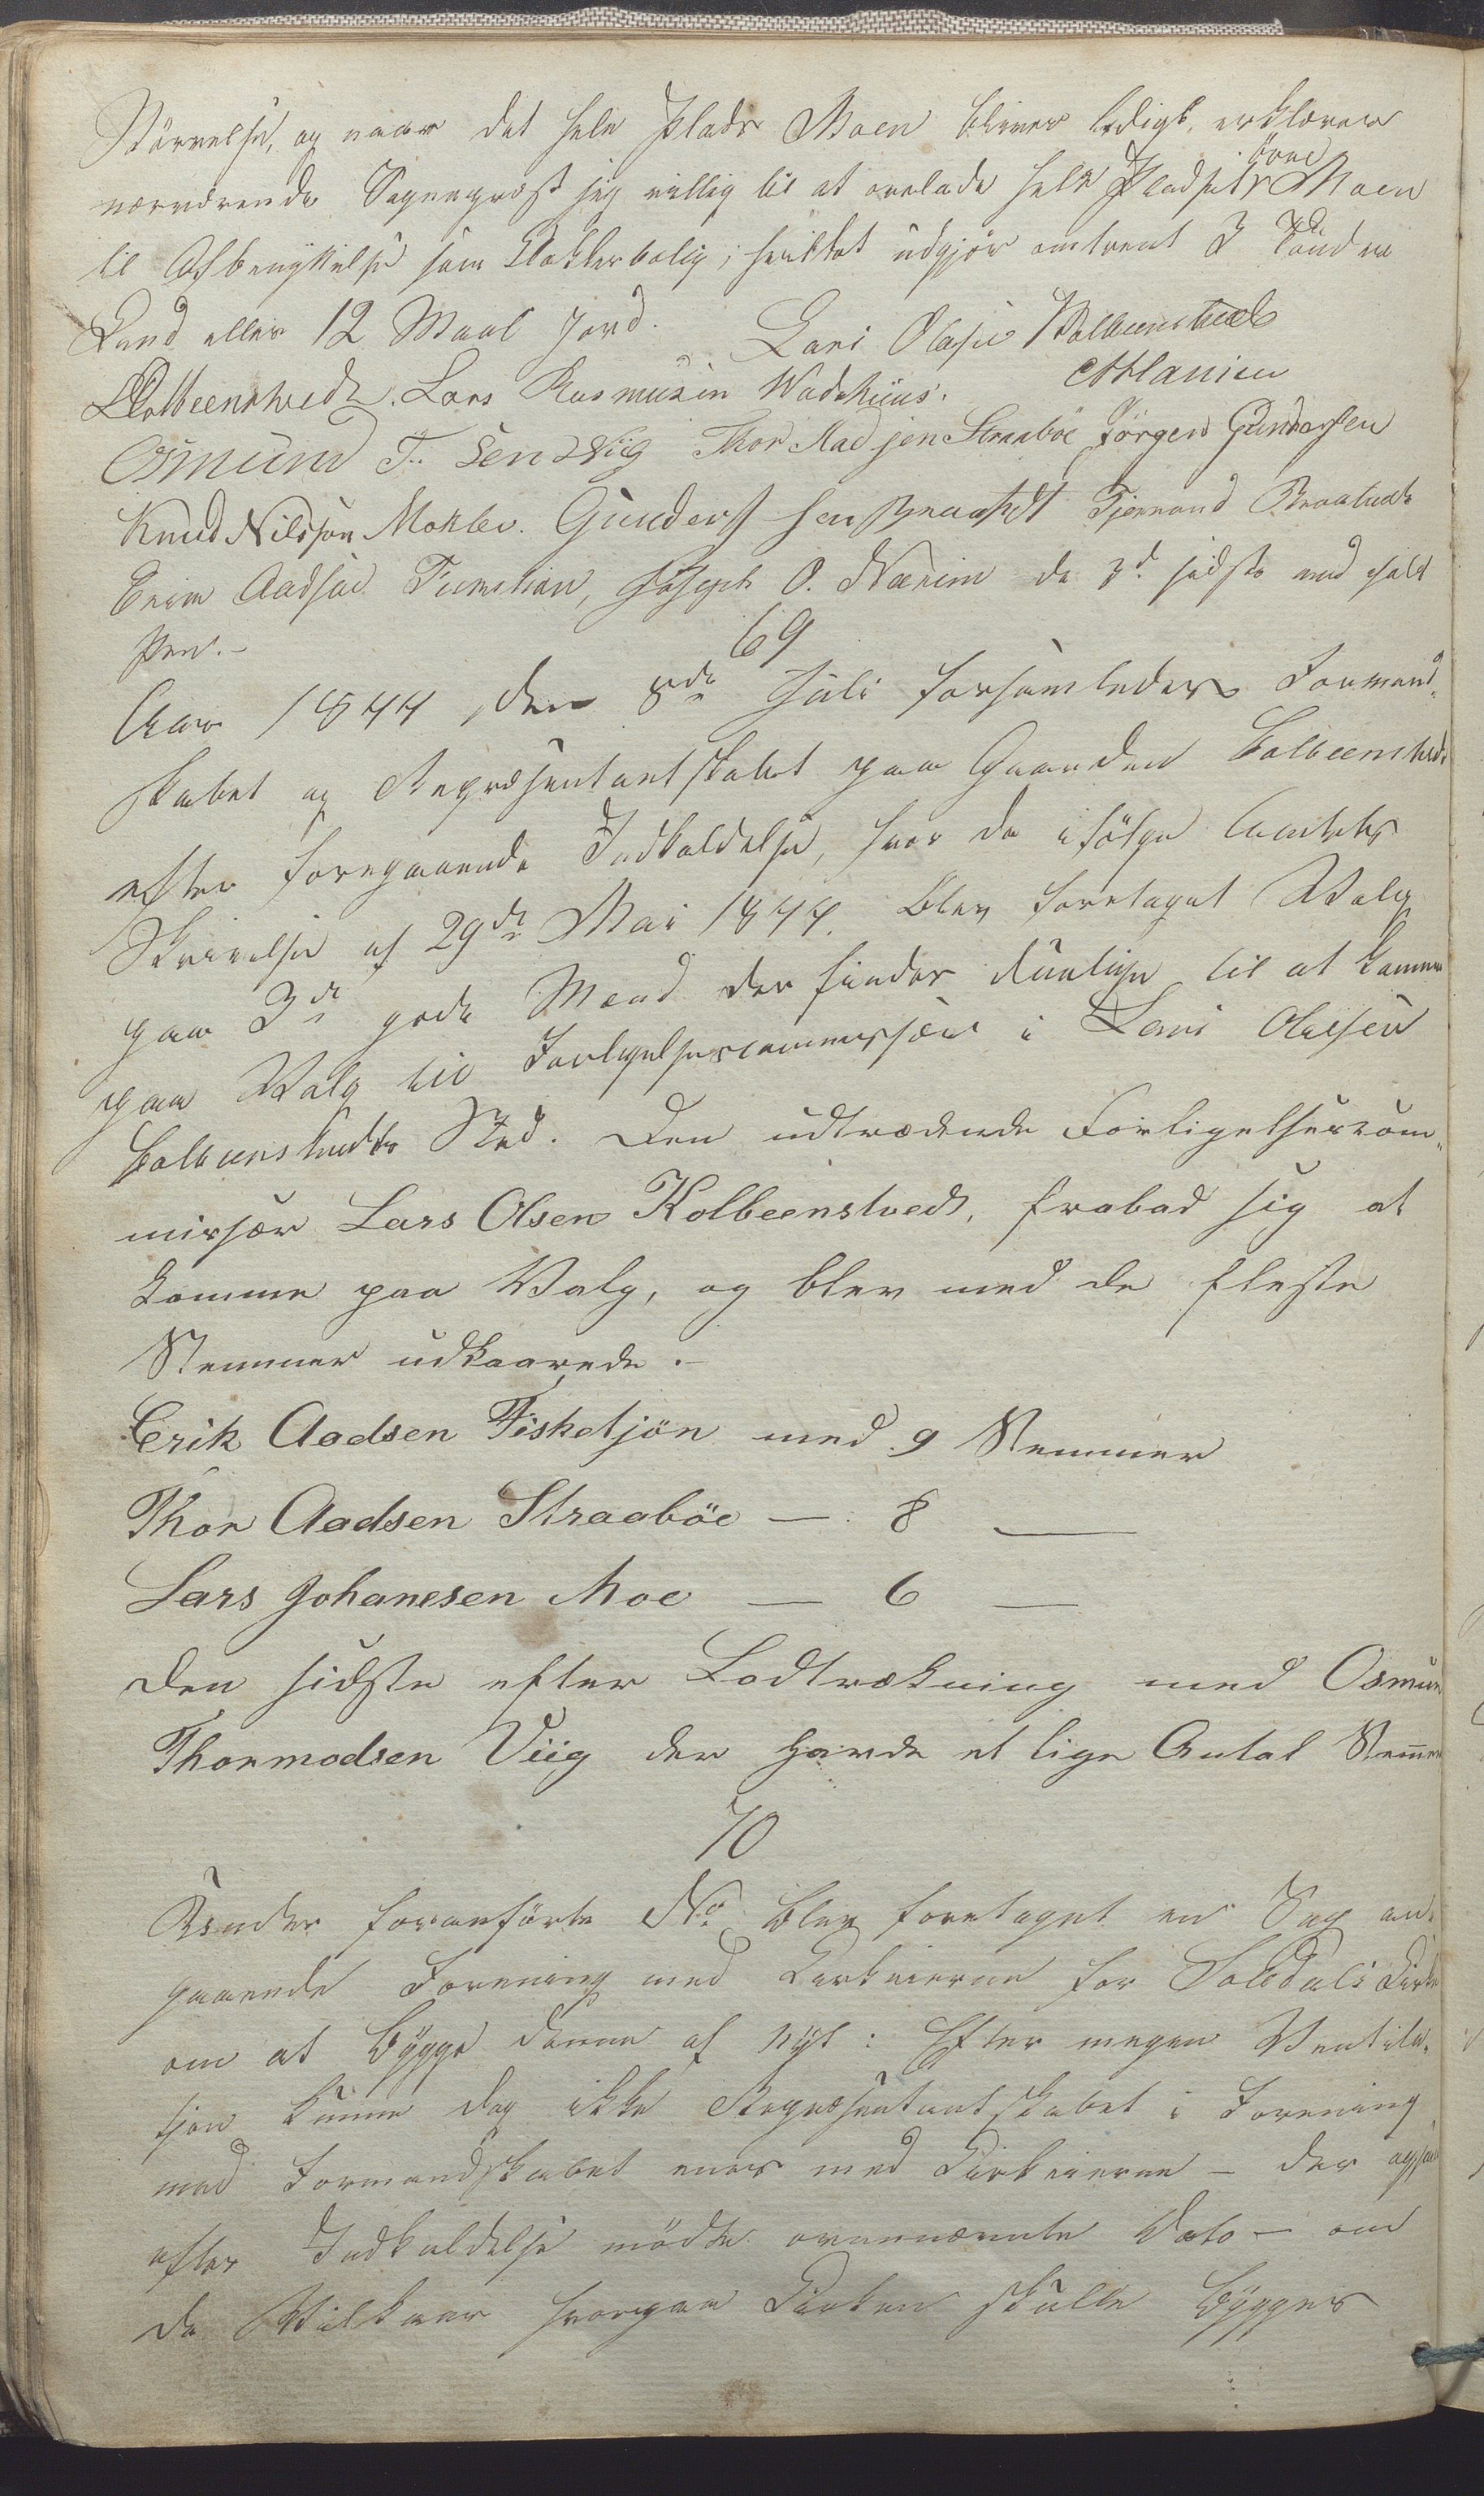 Størrelse, og naar det hele Plads Moen bliver ledigt, erklærer
nærværende Sogneprest sig villig til at overlade hele Pladset övre Moen
til Afbenyttelse som Klokkerbolig; hvilket udgjør omtrent 3 Tönder
Land eller 12 Maal Jord. Lars Olsen Kolbeenstvedt
Kolbeenstvedt. Lars Rasmusen Wadshuus.
Osmund T. Sen Viig Thor Aadsen Straaböe Jörgen Gundersen
Knud Nilsson Mokler. Gunder sen Braatedt Tjerrand Braatedt
Erik Aadsen Fisketiön, O. Næsim de 3de sidste med holdt
Pen.-
69
Aar 1844 den 8de Juli forsamledes Formand-
skabet og Repræsentantskabet paa Gaarden Kolbeenstvedt
efter foregaaende Indkaldelse, hvor da ifölge Amtets
Skrivelse af 29de Mai 1844. blev foretaget Valg
paa 3de gode Mænd der findes duelige til at komme
paa Valg til Forligelsescommissair i Lars Olsen
Kolbeenstvedts Sted. Den udtrædende Forligelsescom-
missær Lars Olsen Kolbeenstvedt, frabad sig at
komme paa Valg, og blev med de fleste
Stemmer udkaarede.-
Erik Aadsen Fisketjön med 9 Stemmer
Thor Aadsen Straaböe — 8 —
Lars Johanesen Moe — 6 —
den sidste efter Lodtrækning med Osmun
Thormodsen Viig der havde et lige Antal Stemmer
70
Under foranförte No blev foretaget en Sag an-
gaaende Forening med Kirkeierne for Kirke
om at bygge denne af nyt: Efter megen Ventila-
tjon kunne dog ikke Repræsentantskabet i Forening
med Formandskabet enes med Kirkeierne - der ogsaa
efter Indkaldelse mödte ovennævnte Dato - om
de Vilkaar hvorpaa Kirken skulle bygges